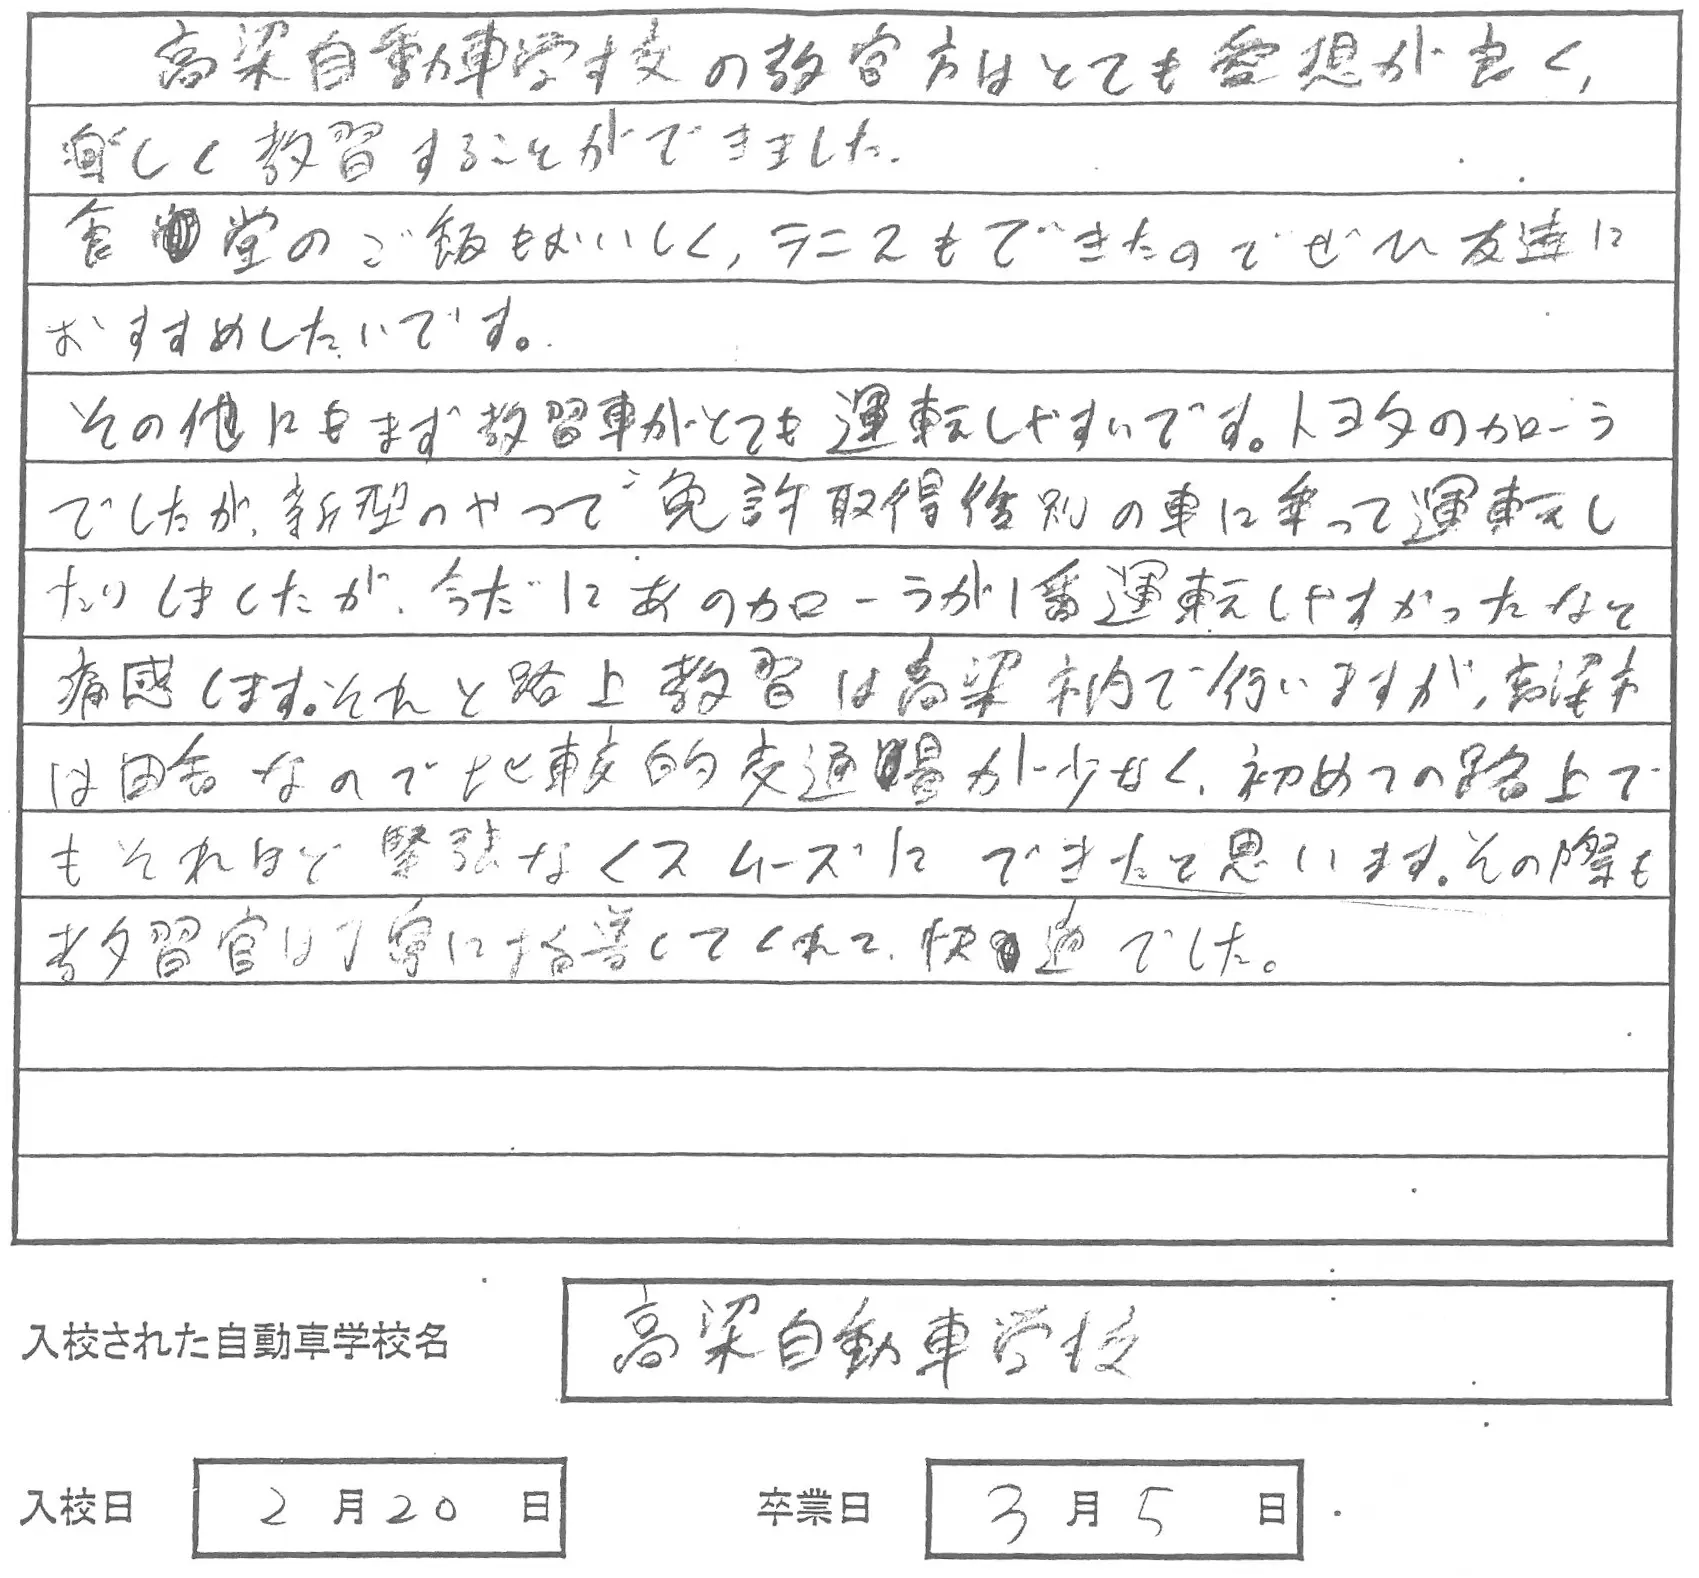 高梁自動車学校の教官方はとても愛想が良く,
楽しく教習することができました.
食堂のご飯もおいしく,テニスもできたのでぜひ友達に
おすすめしたいです。
その他にもまず教習車がとても運転しやすいです。トヨタのカローラ
でしたが、新型のやつで免許取得後別の車に乗って運転し
たりしましたが、今だにあのカローラが1番運転しやすかったなと
痛感します。それと路上教習は高梁市内で行いますが、高梁市
は田舎なので比較的交通量が少なく、初めての路上で
もそれほど緊張なくスムーズにできたと思います。その際も
教習官は丁寧に指導してくれて、快適でした。
入校された自動車学校名 高梁自動車学校
入校日 2月20日 卒業日 3月5日